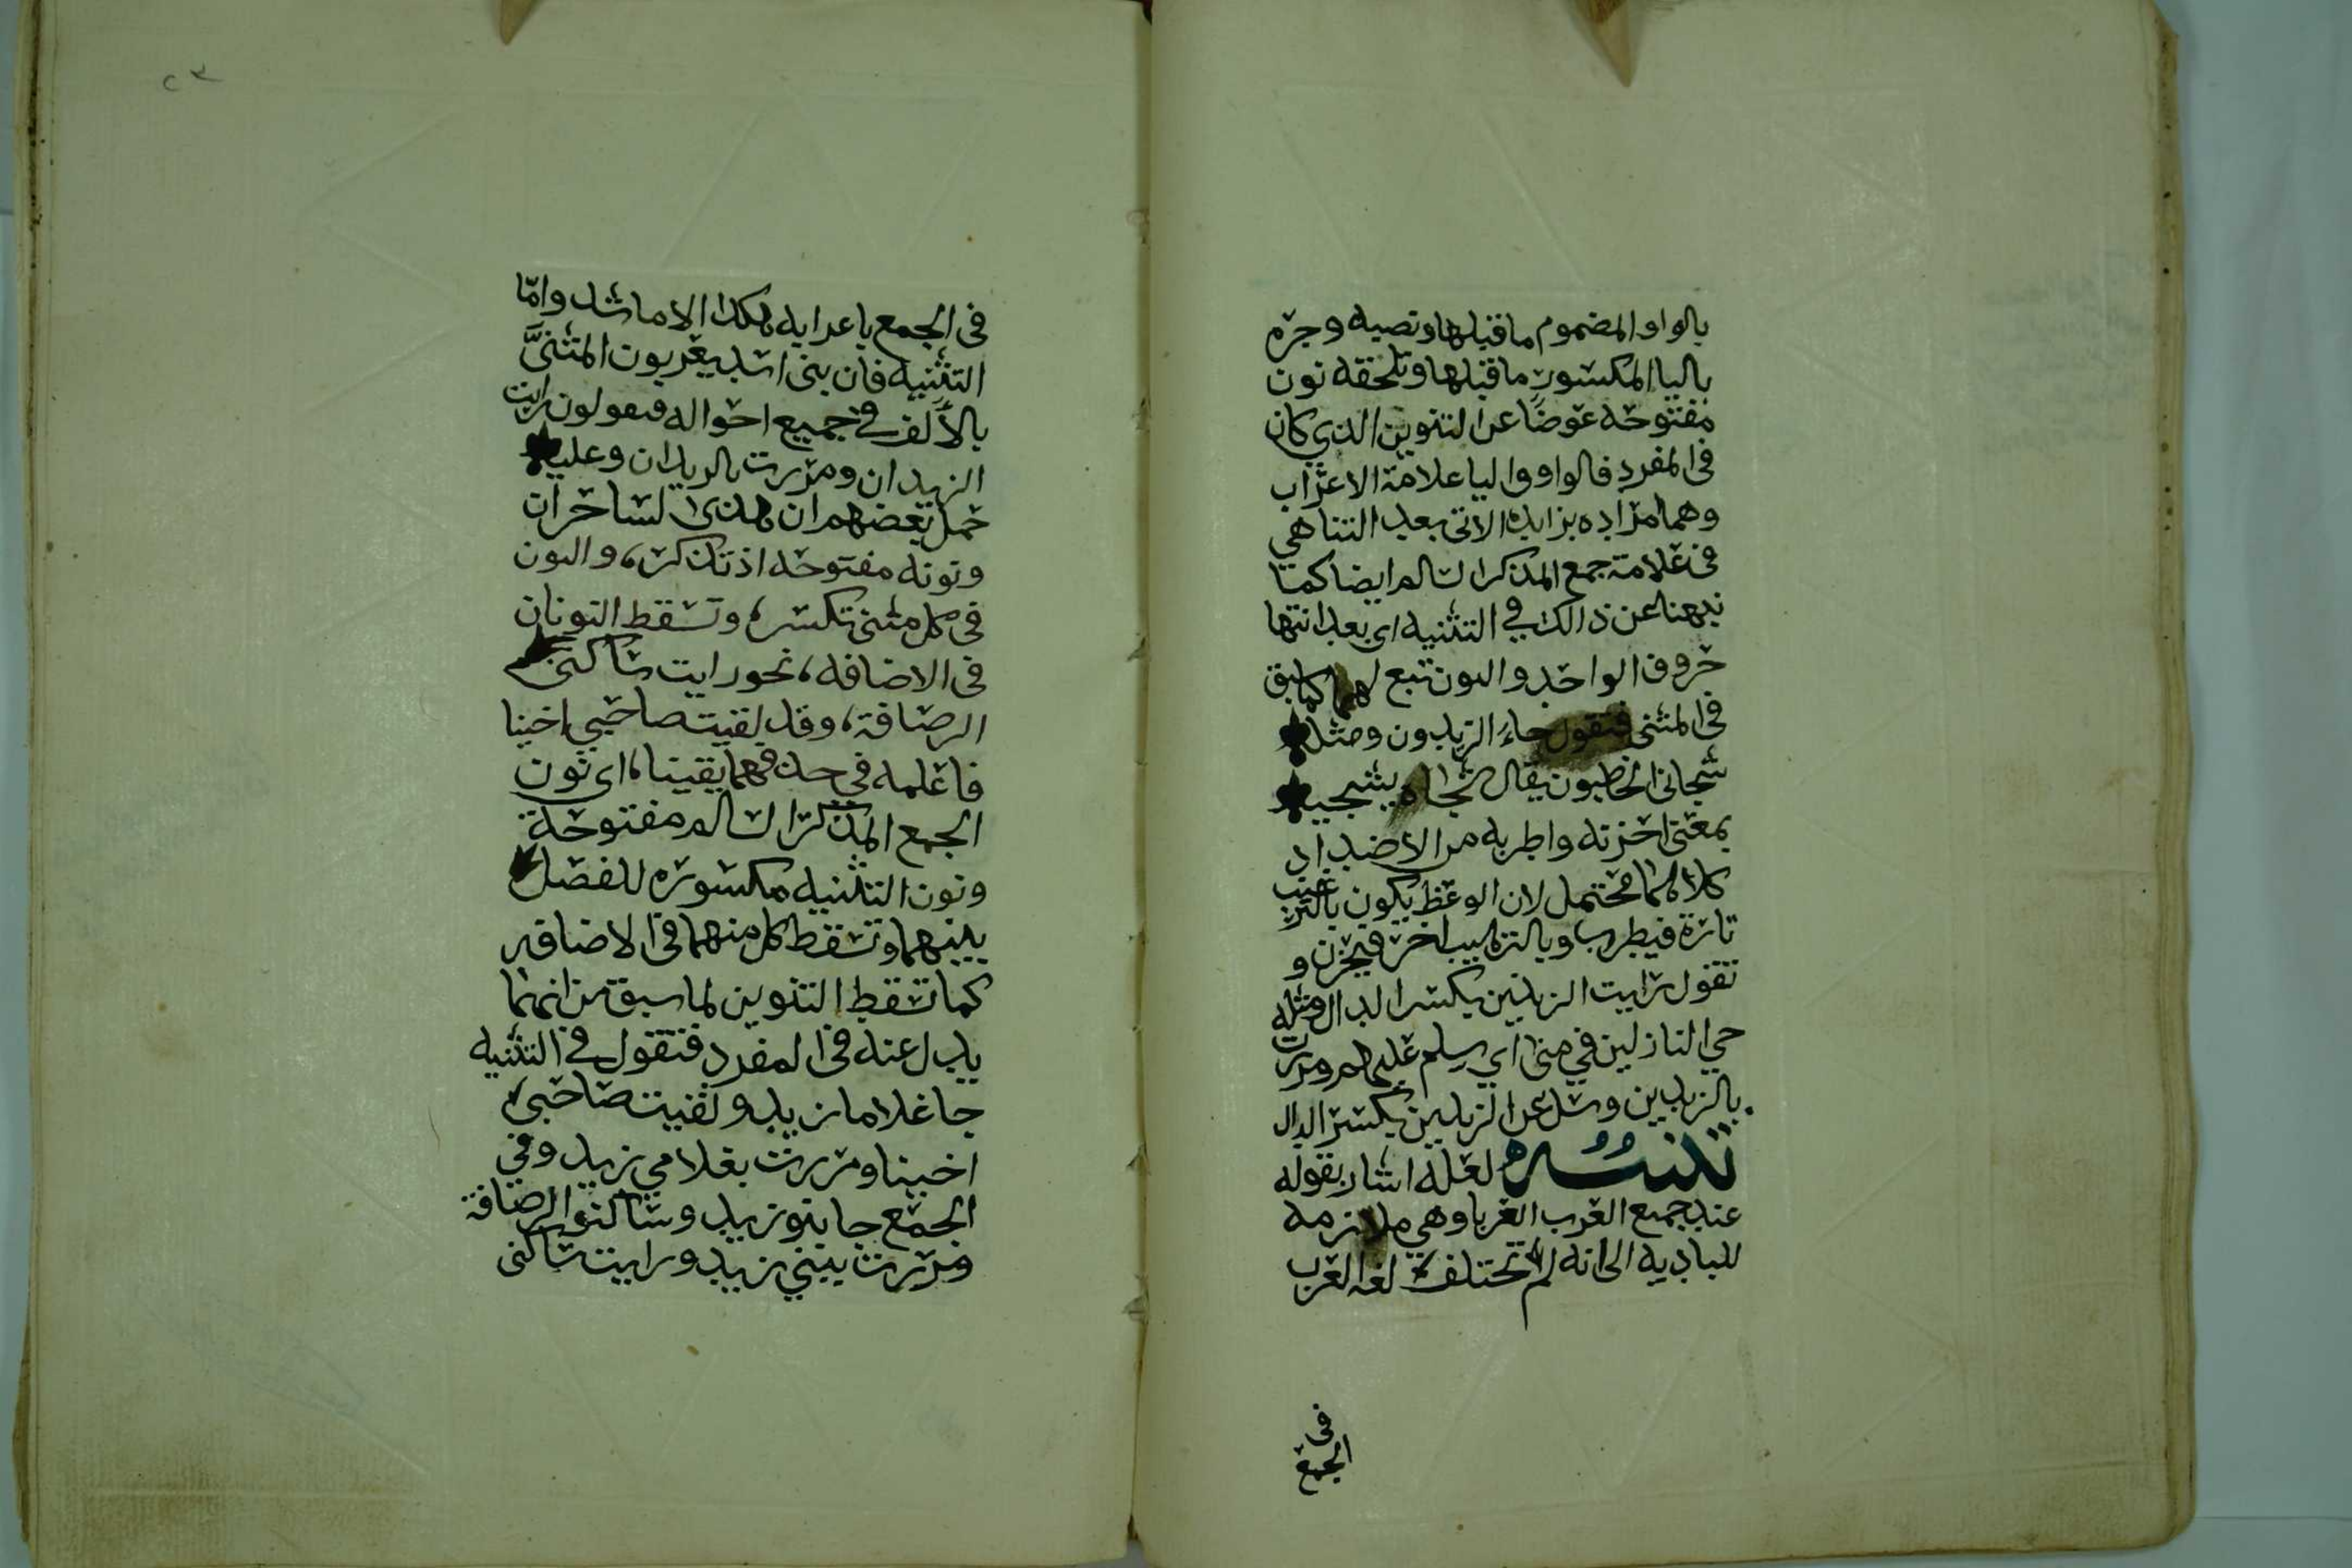 بالواو المضموم ما قبلها ونصبه وجره
باليا المكسور ما قبلها وتلحقه نون
مفتوحه عوضا عن التنوين الذي كان
في المفرد فالواو واليا علامة الاعراب
وهما مزاده بزايده الاتي بعد التناهي
في علامة جمع المذكر السالم ايضا كما
نبهنا عن ذالك في التثنيه اي بعد انتها
حروف الواحد والنون تبع لهما كما سبق
في المثنى فتقول جاء الزيدون ومثله
شجاني الخاطبون يقال شجاه يشجيه
بمعنى احزنه واطربه من الاضداد
كلاهما محتمل لان الوعظ يكون بالترغيب
تارة فيطرب وبالترهيب اخر فيحزن و
تقول رايت الزيدين بكسر الدال ومثله
حي النازلين في منى اي سلم عليهم ومررت
بالزيدين وسل عن الزيدين بكسر الدال
تنبيه لعله اشار بقوله
عند جميع العرب العربا وهي ملازمه
للباديه الى انه لم تختلف لغه العرب
في
الجمع
٢٣
في الجمع باعرابه هكذا الا ما شذ واما
التثنيه فان بني اسد يعربون المثنى
بالألف في جميع احواله فيقولون رايت
الزيدان ومررت بالزيدان وعليه
حمل بعضهم ان هذان لساحران
ونونه مفتوحه اذ تذكر، والنون
في كل مثنى تكسر، وتسقط النونان
في الاضافه، نحو رايت ساكني
الرصافة، وقد لقيت صاحبي اخينا
فاعلمه في حذفهما يقينا، اي نون
الجمع المذكر السالم مفتوحة
ونون التثنيه مكسوره للفصل
بينهما وتسقط كل منهما في الاضافه
كما تسقط التنوين لما سبق من انهما
بدل عنه في المفرد فتقول في التثنيه
جا غلاما زيد ولقيت صاحبي
اخينا ومررت بغلامي زيد وفي
الجمع جا بنو زيد وساكنو الرصافة
ومررت ببني زيد ورايت ساكني